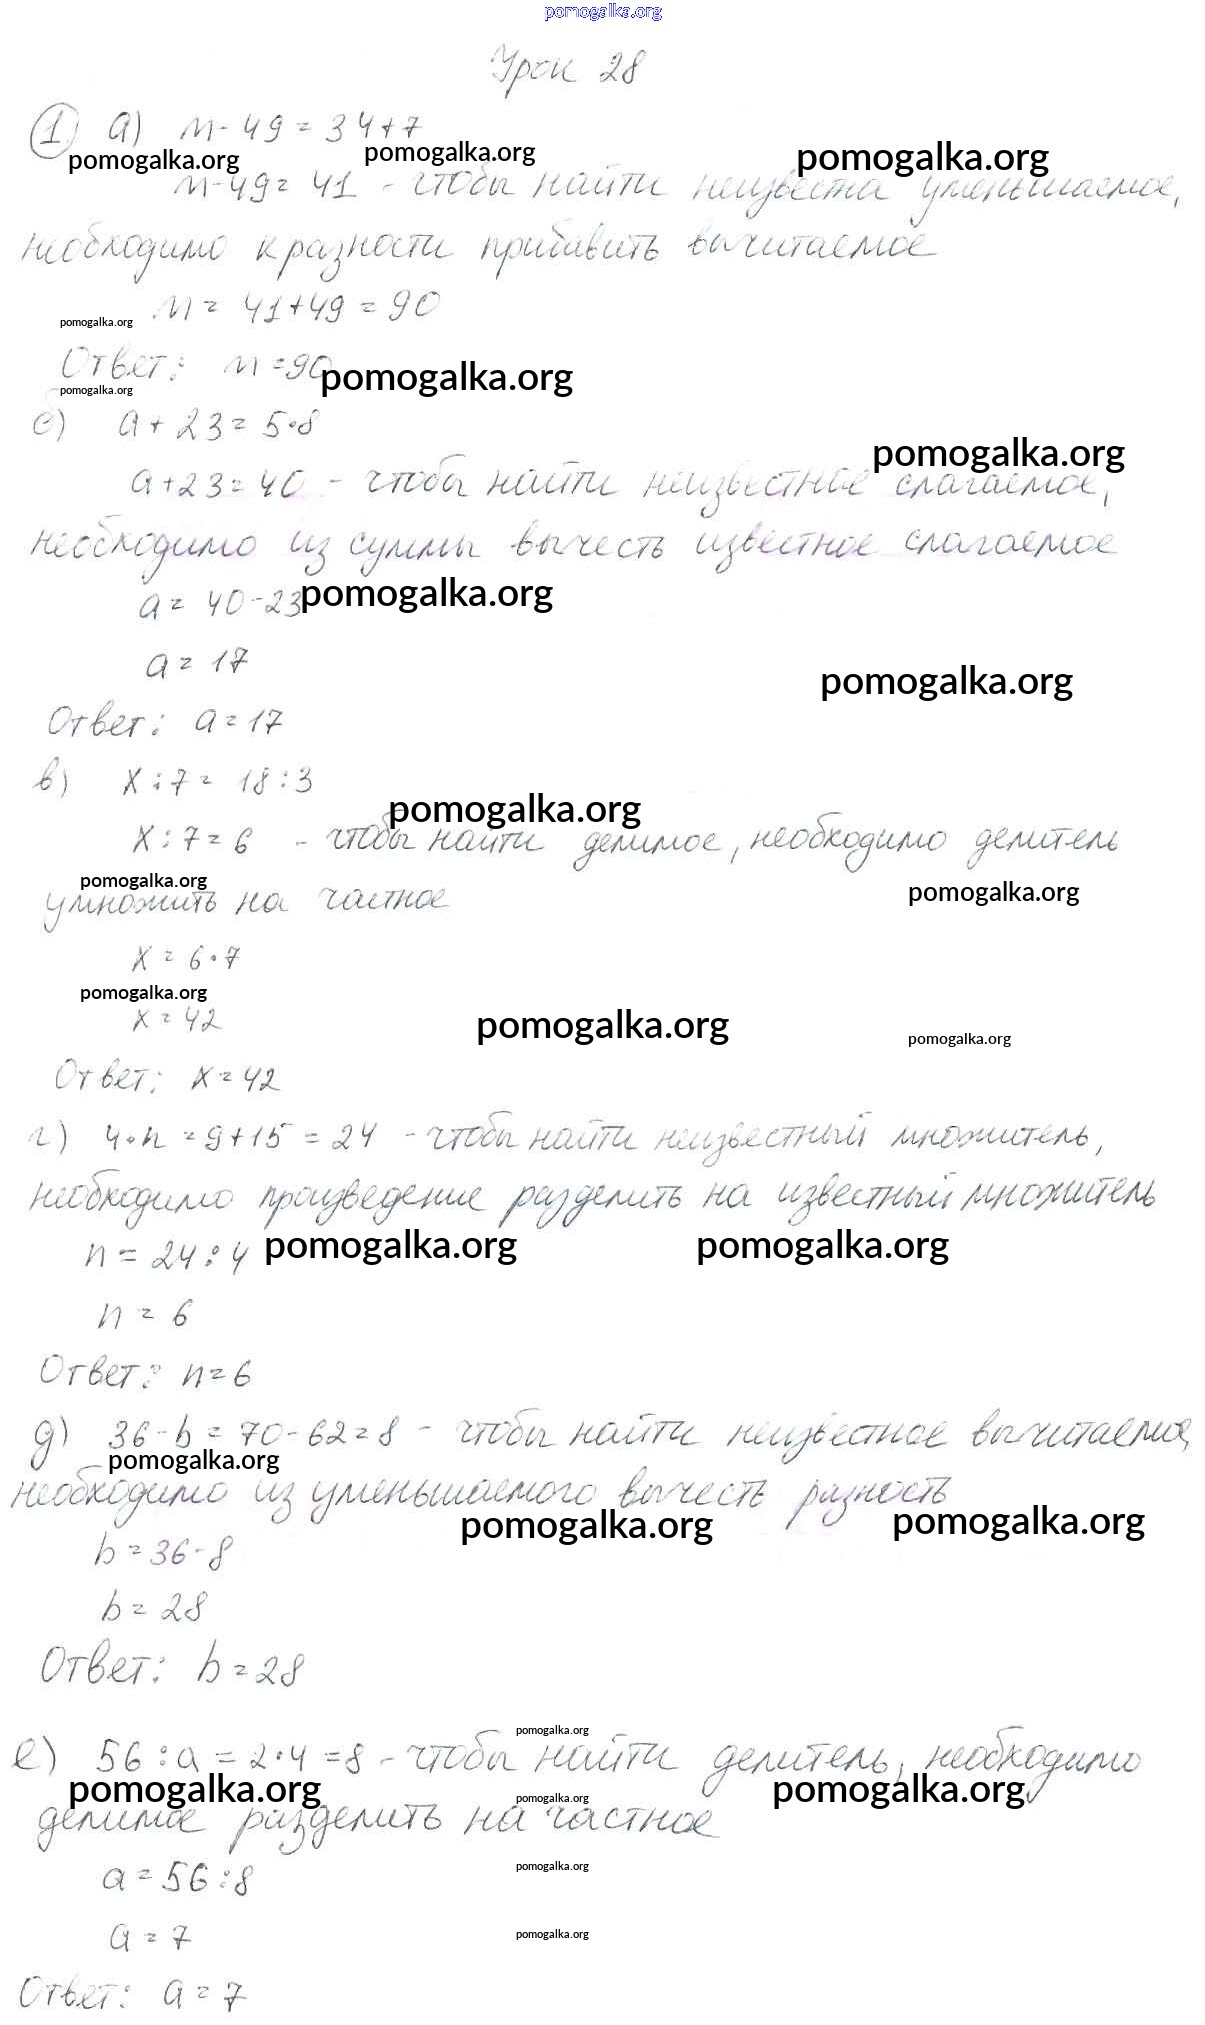 pomogalka.org
Урок 28
1 а) m - 49 = 34 + 7
pomogalka.org pomogalka.org pomogalka.org
m - 49 = 41 - чтобы найти неизвестна уменьшаемое,
необходимо к разности прибавить вычитаемое
m = 41 + 49 = 90
pomogalka.org
Ответ: m = 90
pomogalka.org
pomogalka.org
б) a + 23 = 5 · 8
pomogalka.org
a + 23 = 40 - чтобы найти неизвестное слагаемое,
необходимо из суммы вычесть известное слагаемое
a = 40 - 23
pomogalka.org
a = 17
pomogalka.org
Ответ: a = 17
в) x : 7 = 18 : 3
pomogalka.org
x : 7 = 6 - чтобы найти делимое, необходимо делитель
pomogalka.org pomogalka.org
умножить на частное
x = 6 · 7
pomogalka.org
x = 42
pomogalka.org pomogalka.org
Ответ: x = 42
г) 4 · n = 9 + 15 = 24 - чтобы найти неизвестный множитель,
необходимо произведение разделить на известный множитель
n = 24 : 4
pomogalka.org pomogalka.org
n = 6
Ответ: n = 6
д) 36 - b = 70 - 62 = 8 - чтобы найти неизвестное вычитаемое,
pomogalka.org
необходимо из уменьшаемого вычесть разность
pomogalka.org pomogalka.org
b = 36 - 8
b = 28
Ответ: b = 28
pomogalka.org
е) 56 : a = 2 · 4 = 8 - чтобы найти делитель, необходимо
pomogalka.org pomogalka.org pomogalka.org
делимое разделить на частное
pomogalka.org
a = 56 : 8
a = 7
pomogalka.org
Ответ: a = 7